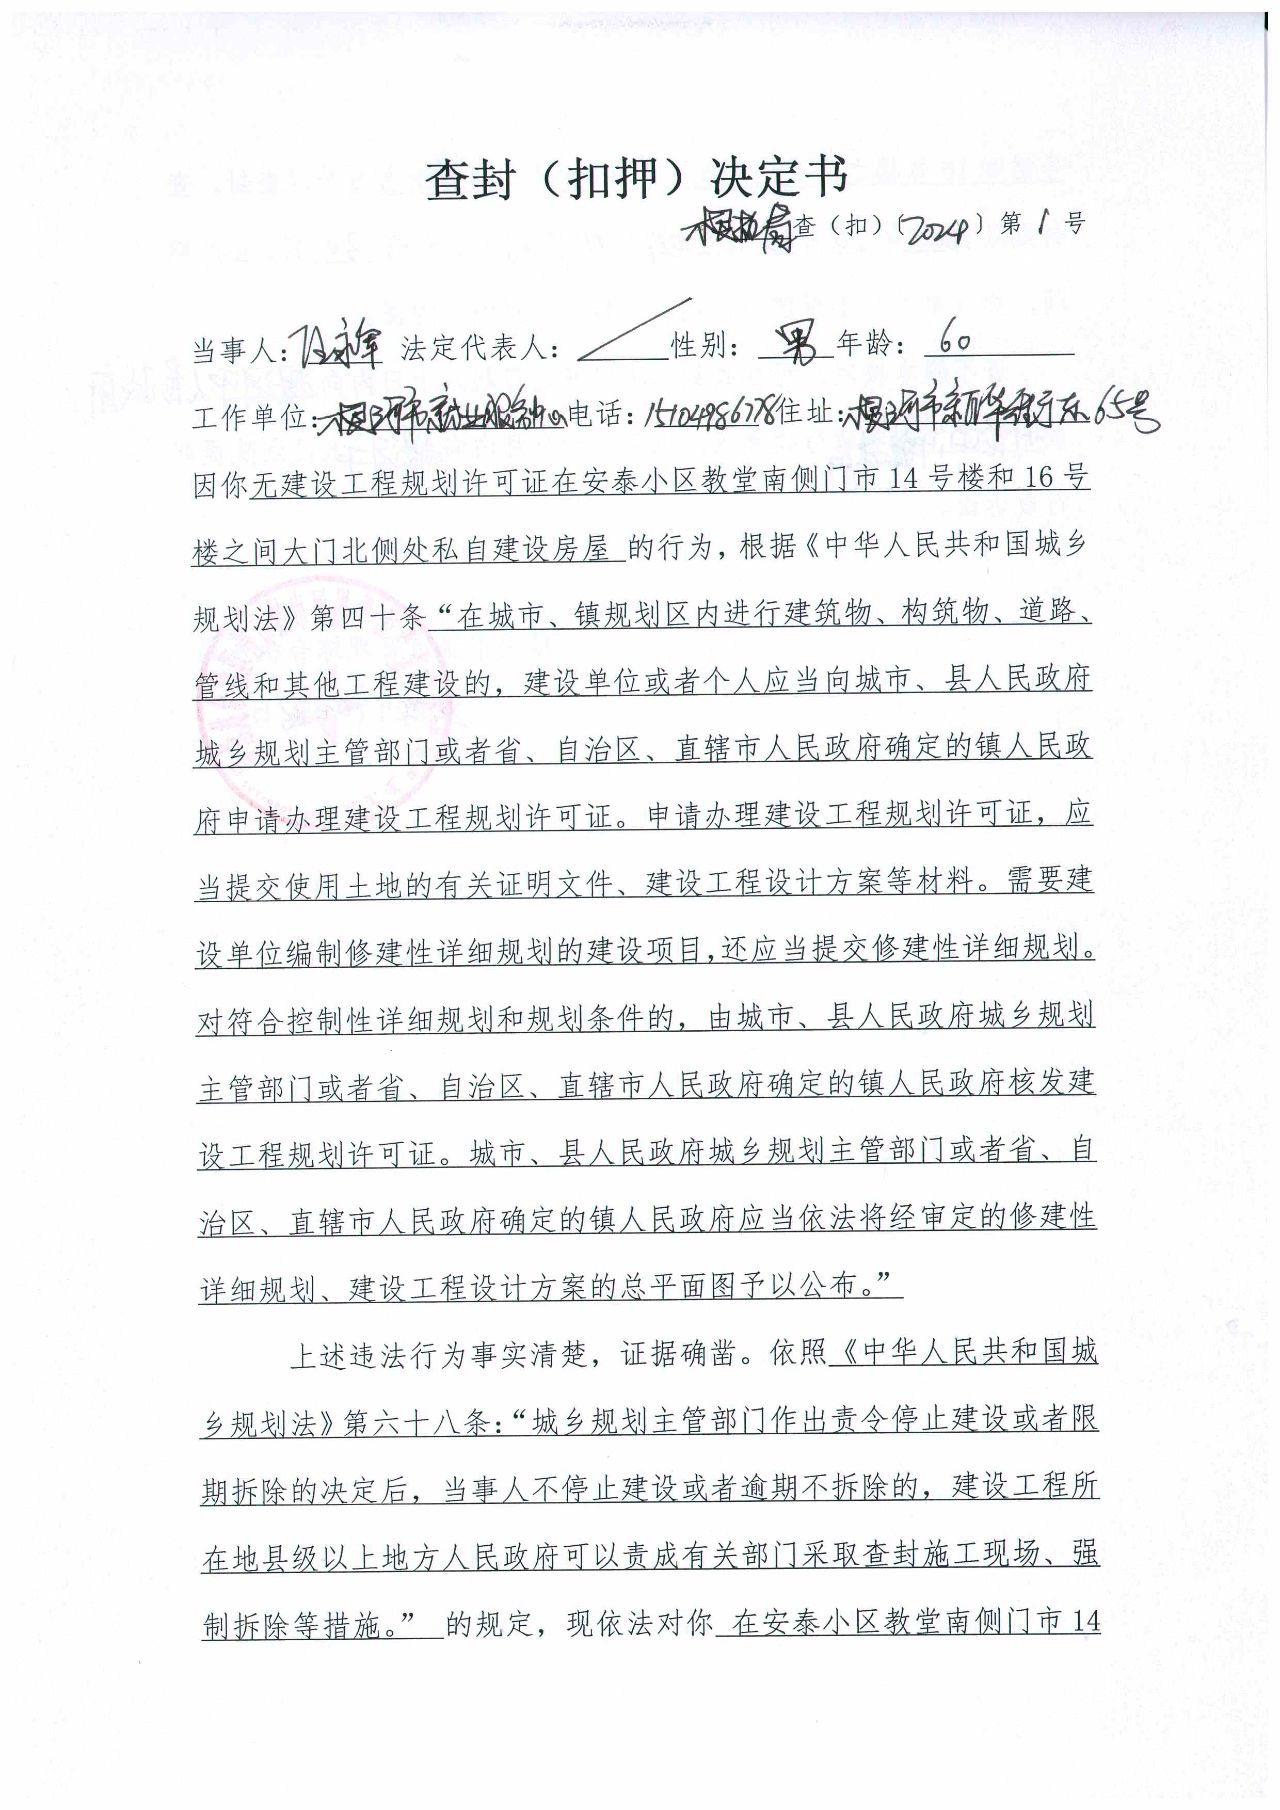 查封（扣押）决定书
根执局查（扣）〔2024〕第1号
当事人：永军 法定代表人： 性别：男 年龄：60
工作单位：根河市就业服务中心电话：15104986778住址：根河市新华街东65号
因你无建设工程规划许可证在安泰小区教堂南侧门市14号楼和16号
楼之间大门北侧处私自建设房屋 的行为，根据《中华人民共和国城乡
规划法》第四十条“在城市、镇规划区内进行建筑物、构筑物、道路、
管线和其他工程建设的，建设单位或者个人应当向城市、县人民政府
城乡规划主管部门或者省、自治区、直辖市人民政府确定的镇人民政
府申请办理建设工程规划许可证。申请办理建设工程规划许可证，应
当提交使用土地的有关证明文件、建设工程设计方案等材料。需要建
设单位编制修建性详细规划的建设项目，还应当提交修建性详细规划。
对符合控制性详细规划和规划条件的，由城市、县人民政府城乡规划
主管部门或者省、自治区、直辖市人民政府确定的镇人民政府核发建
设工程规划许可证。城市、县人民政府城乡规划主管部门或者省、自
治区、直辖市人民政府确定的镇人民政府应当依法将经审定的修建性
详细规划、建设工程设计方案的总平面图予以公布。”
上述违法行为事实清楚，证据确凿。依照《中华人民共和国城
乡规划法》第六十八条：“城乡规划主管部门作出责令停止建设或者限
期拆除的决定后，当事人不停止建设或者逾期不拆除的，建设工程所
在地县级以上地方人民政府可以责成有关部门采取查封施工现场、强
制拆除等措施。” 的规定，现依法对你 在安泰小区教堂南侧门市14